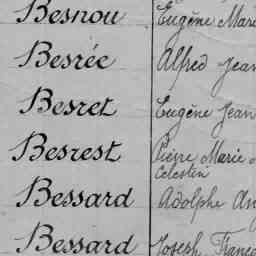 Besnou Eugène Marie
Besrée Alfred Jean
Besret Eugène Jean
Besrest Pierre Marie
Célestin
Bessard Adolphe
Bessard Joseph Franç